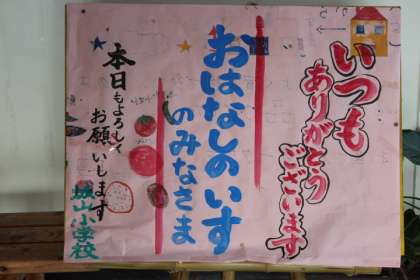 いつも
ありがとう
ございます
おはなしのいす
のみなさま
本日もよろしく
お願いします
城山小学校